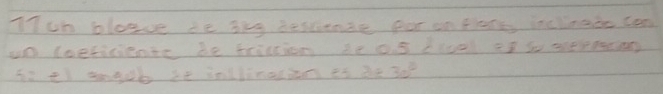 11 un bloque de 3kg desciende por un plano inclinado con
un coeficiente de friccion de 0.5 ¿cual es su aceleracion
si el angulo de inclinacion es de 30°